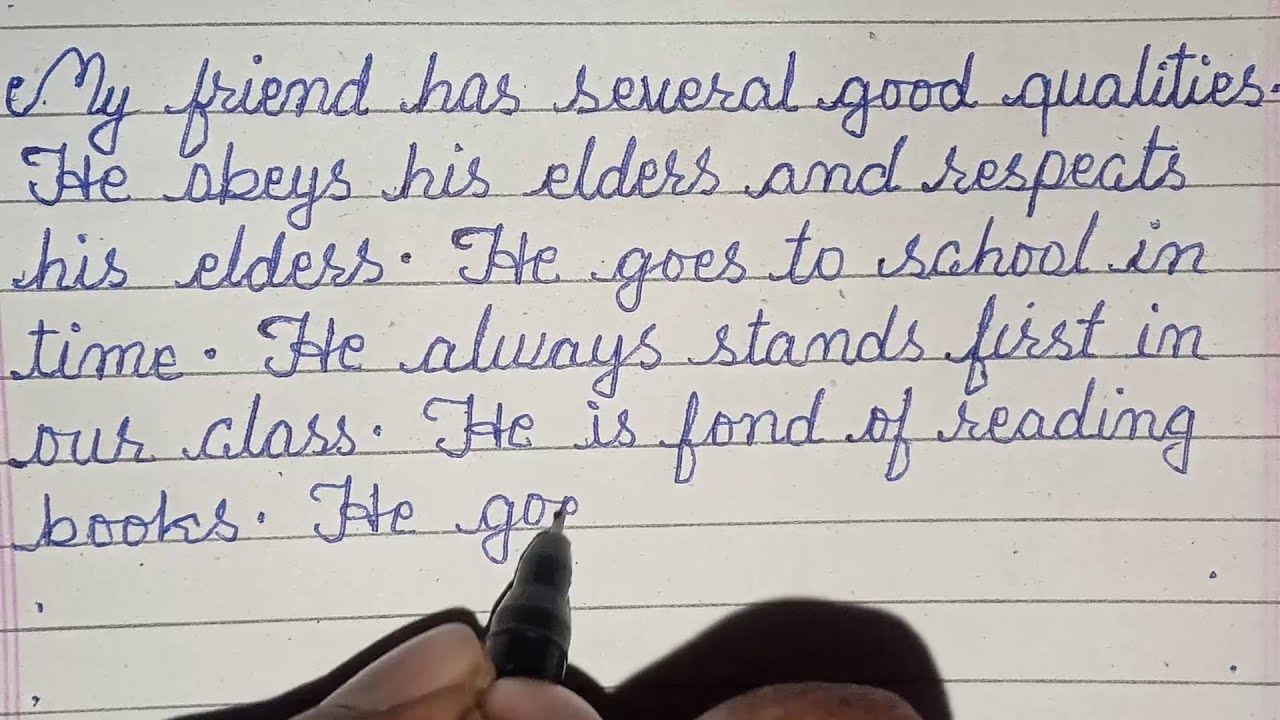 My friend has several good qualities.
He obeys his elders and respects
his elders. He goes to school in
time. He always stands first in
our class. He is fond of reading
books. He goe